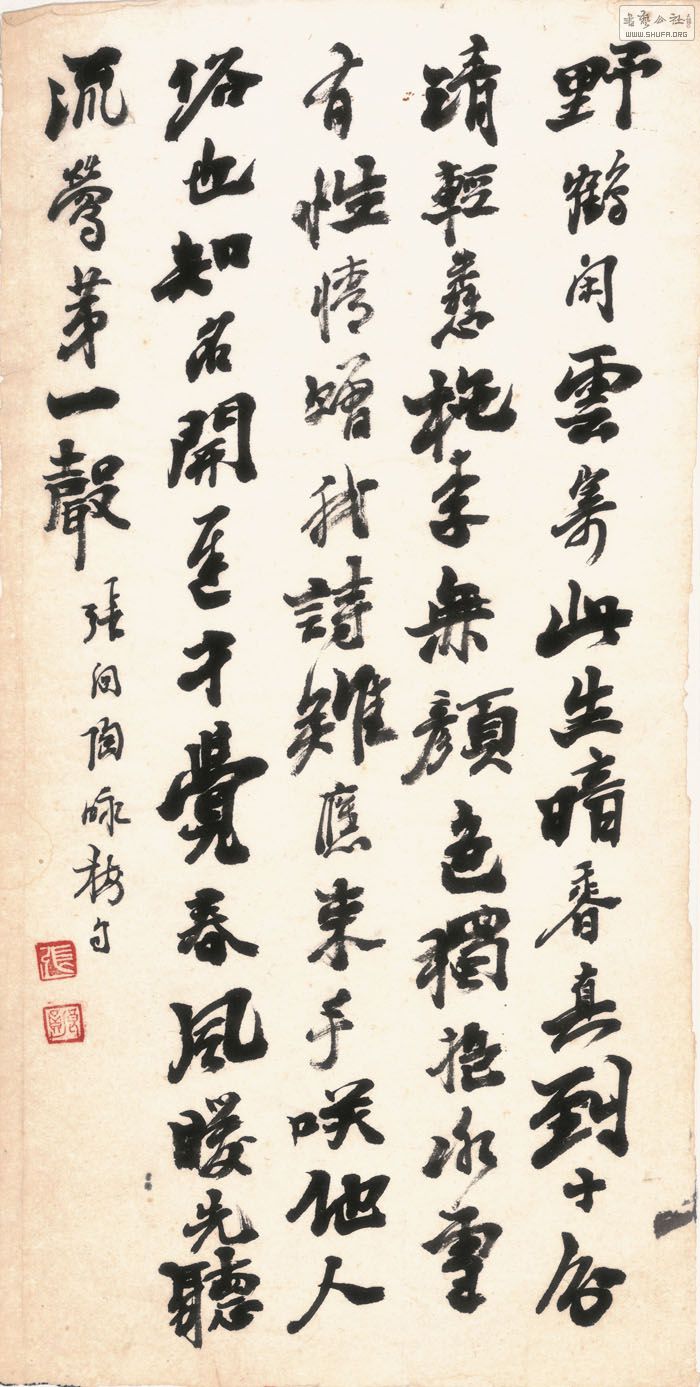 野鶴閑雲寄此生暗香真到十分
清輕惹桃李無顏色獨抱冰雪
有性情贈我詩難應束手咲他人
俗也知名開遲才覺春風暖先聽
流鶯第一聲
張問陶咏梅句
張
書藝公社
WWW.SHUFA.ORG